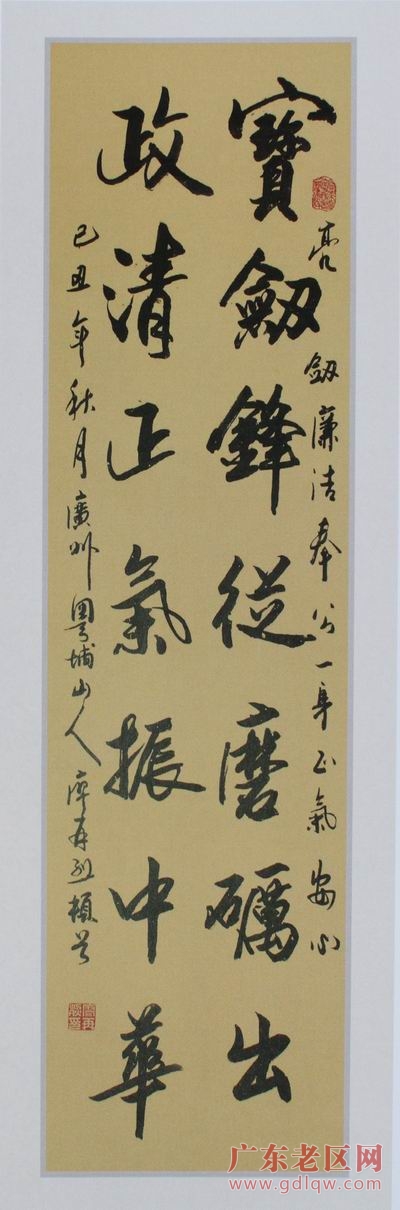 亮劔廉洁奉公一身正氣
寶劔鋒從磨礪出
政清正氣振中華
己丑年秋月廣州粵埔山人廖再烈頓首
广东老区网
www.gdlqw.com